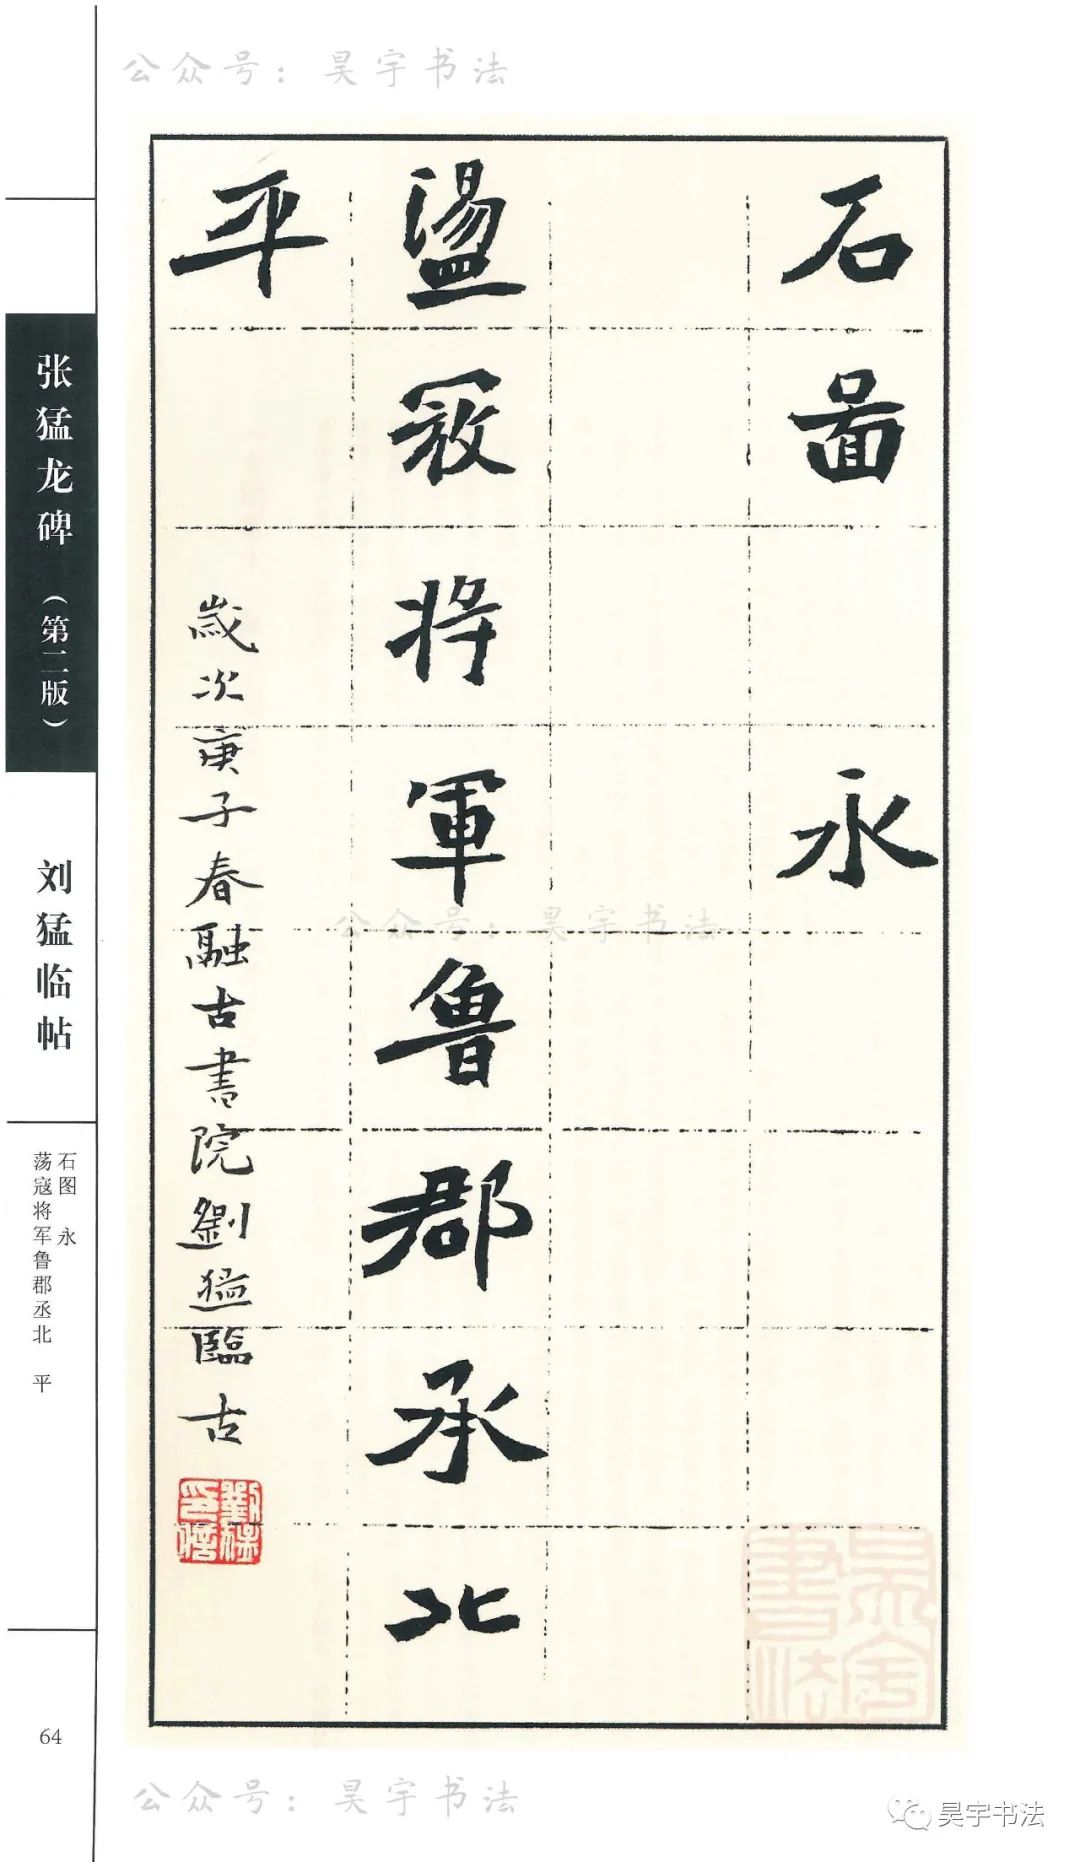 公众号：昊宇书法
石啚 永
盪寇将軍魯郡丞北
平
歲次庚子春融古書院劉猛臨古
张猛龙碑（第二版）
刘猛临帖
石图 永
荡寇将军鲁郡丞北 平
64
公众号：昊宇书法
昊宇書法
公众号：昊宇书法
昊宇书法